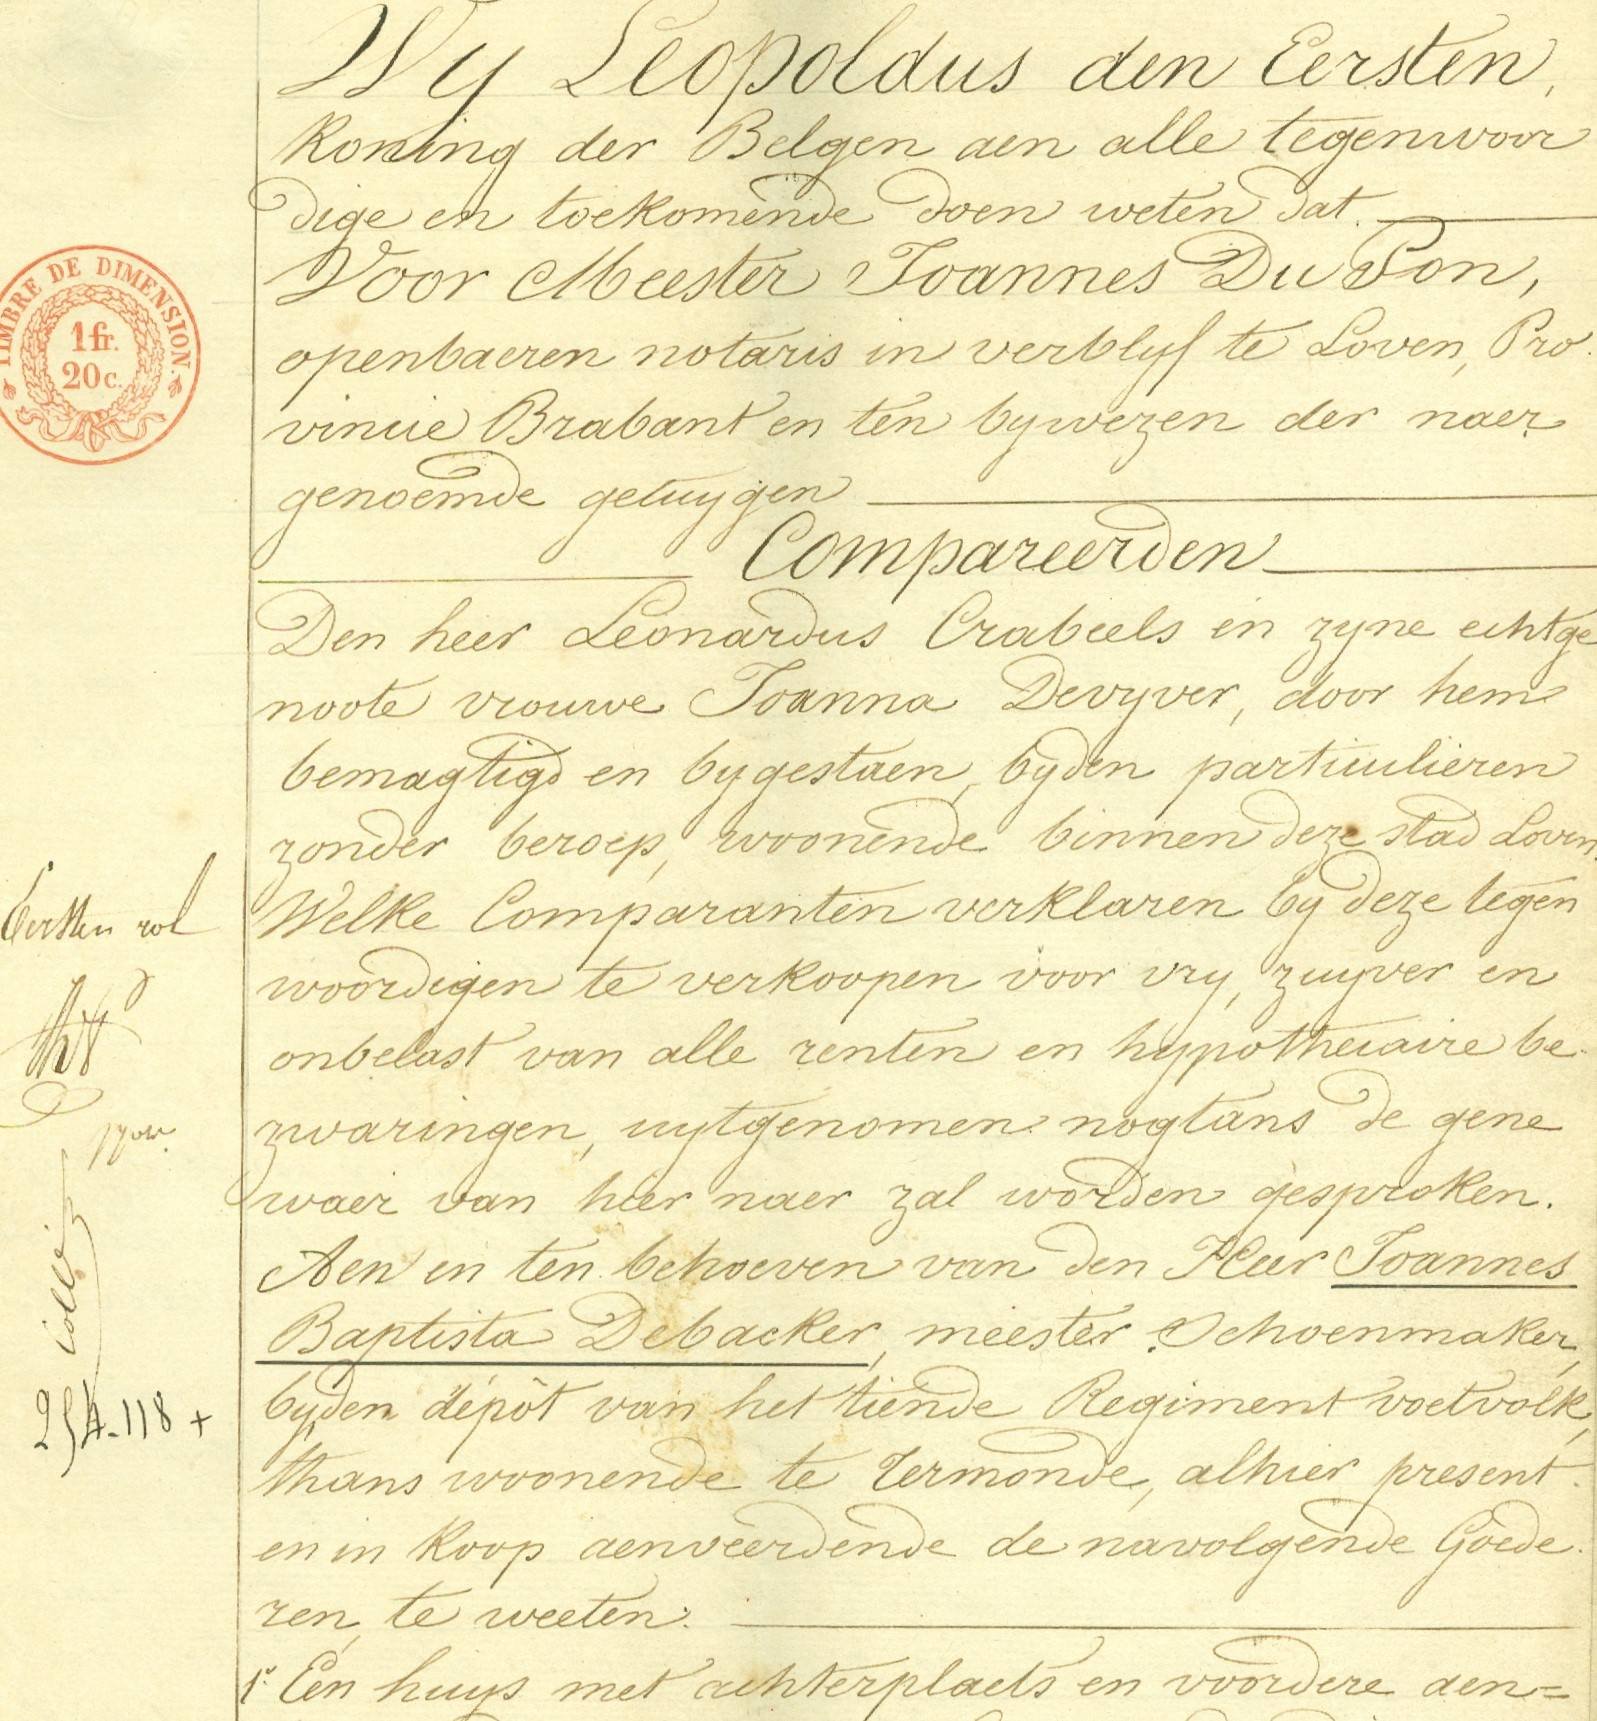 Wy Leopoldus den Eersten,
Koning der Belgen aen alle tegenwoor
dige en toekomende doen weten dat
Voor Meester Joannes Du Pon,
openbaeren notaris in verblyf te Loven, Pro
vincie Brabant en ten bywezen der naer
genoemde getuygen
Compareerden
Den heer Leonardus Crabeels en zyne echtge
noote vrouwe Joanna Devyver, door hem
bemagtigd en bygestaen, byden particulieren
zonder beroep, woonende binnen deze stad Loven.
Welke Comparanten verklaren by deze tegen
woordigen te verkoopen voor vry, zuyver en
onbelast van alle renten en hypothecaire be-
zwaringen, uytgenomen nogtans de gene
waer van hier naer zal worden gesproken.
Aen en ten behoeven van den Heer Joannes
Baptista Debacker, meester Schoenmaker,
byden dépôt van het tiende Regiment voetvolk,
thans woonende te Termonde, alhier present
en in koop aenveerdende de navolgende Goede-
ren, te weeten:
1° Een huys met achterplaets en voordere aen=
TIMBRE DE DIMENSION.
1 fr.
20 c.
Eersten rol
254-118 +